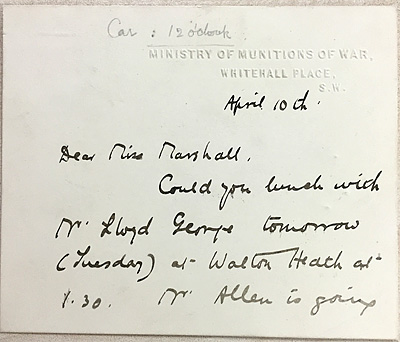 Car : 12 o'clock.
MINISTRY OF MUNITIONS OF WAR,
WHITEHALL PLACE,
S.W.
April 10th.
Dear Miss Marshall.
Could you lunch with
Mr Lloyd George tomorrow
(Tuesday) at Walton Heath at
1.30. Mr Allen is going